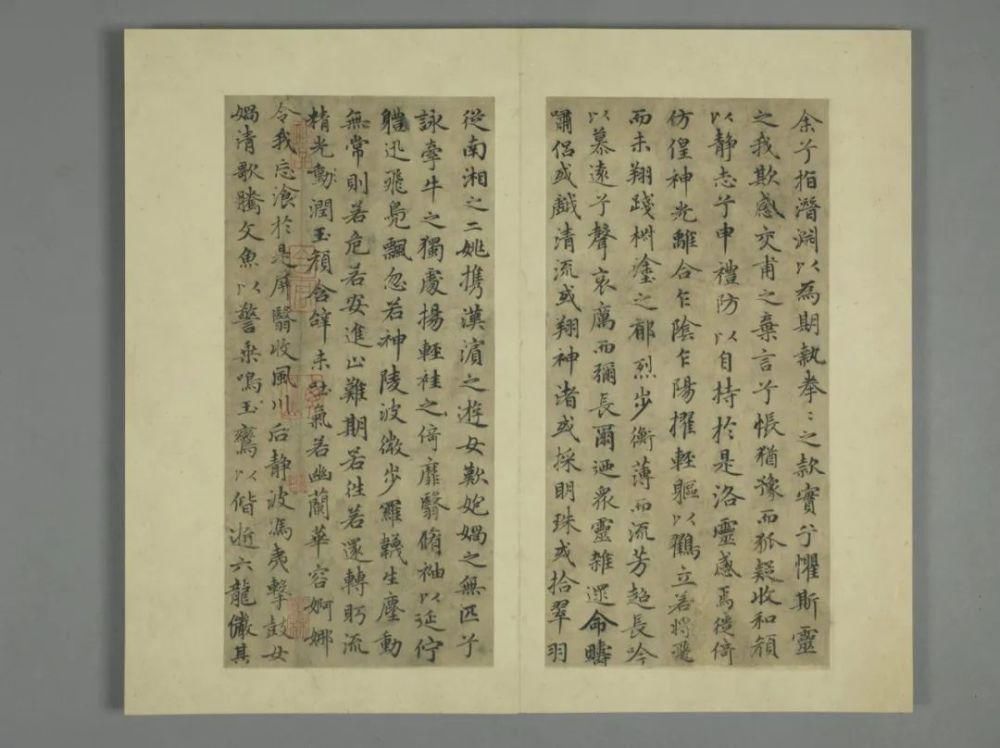 余兮指潛淵以為期執拳〻之款實兮懼斯靈
之我欺感交甫之棄言兮悵猶豫而狐疑收和顏
以靜志兮申禮防以自持於是洛靈感焉徙倚
仿偟神光離合乍陰乍陽擢輕軀以鶴立若將飛
而未翔踐椒塗之郁烈步衡薄而流芳超長吟
以慕遠兮聲哀厲而彌長爾迺衆靈雜遝命疇
嘯侶或戲清流或翔神渚或採明珠或拾翠羽
從南湘之二姚携漢濱之遊女歎妃媧之無匹兮
詠牽牛之獨處揚輕袿之倚靡翳脩袖以延佇
軆迅飛鳧飄忽若神陵波微步羅韈生塵動
無常則若危若安進止難期若往若還轉眄流
精光動潤玉顏含辭未吐氣若幽蘭華容婀娜
令我忘飡於是屏翳收風川后靜波馮夷擊鼓女
媧清歌騰文魚以警乘鳴玉鸞以偕逝六龍儼其